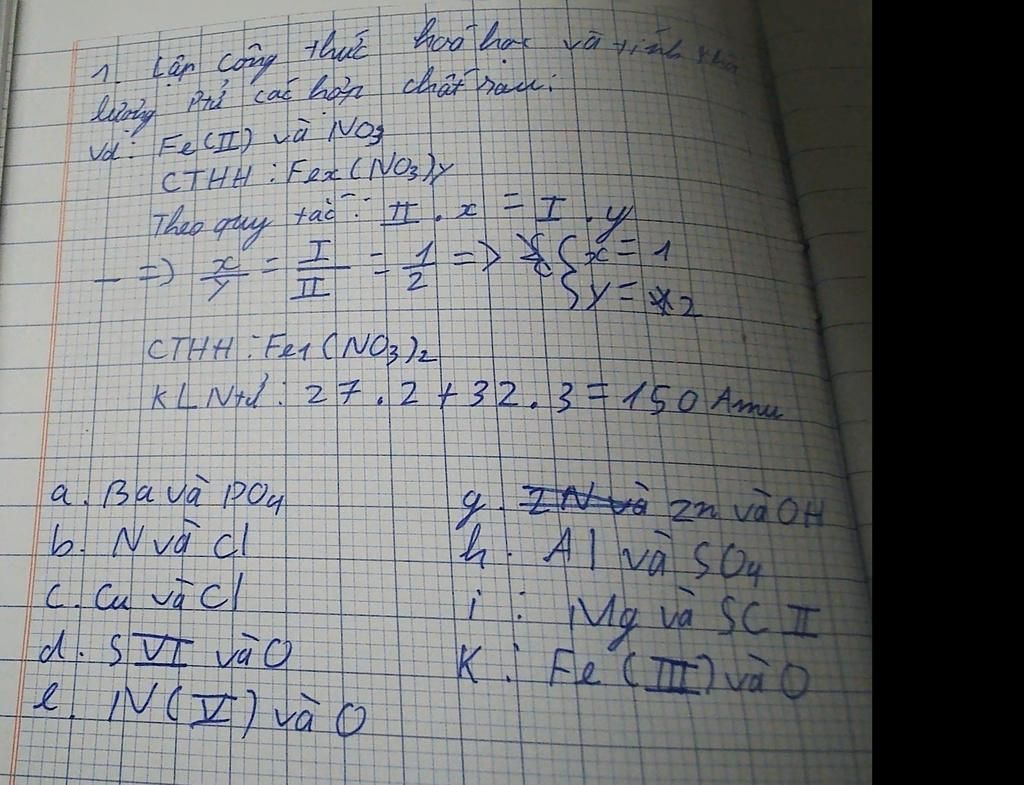 1. Lập công thức hoá học và tính khối
lượng ptử các hợp chất sau:
Vd: Fe(II) và NO3
CTHH: Fex(NO3)y
Theo quy tắc: II . x = I . y
=> x/y = I/II = 1/2 => { x = 1
{ y = 2
CTHH: Fe1(NO3)2
KLNtử: 27.2+32.3=150 Amu
a. Ba và PO4
b. N và Cl
c. Cu và Cl
d. S VI và O
e. N(V) và O
g. Zn và OH
h. Al và SO4
i: Mg và S( II
K: Fe (III) và O